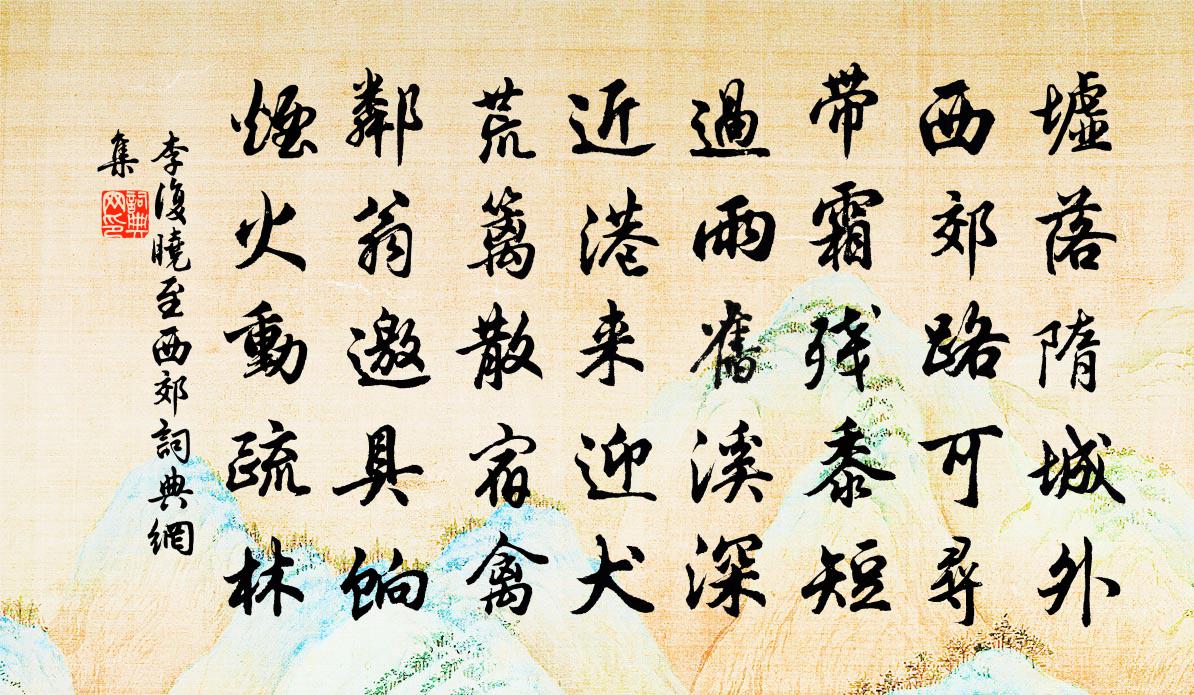 墟落隋城外
西郊路可尋
带霜残黍短
過雨舊溪深
近港来迎犬
荒篱散宿禽
鄰翁邀具餉
煙火動疏林
李復曉至西郊詞典網
集
詞典网印